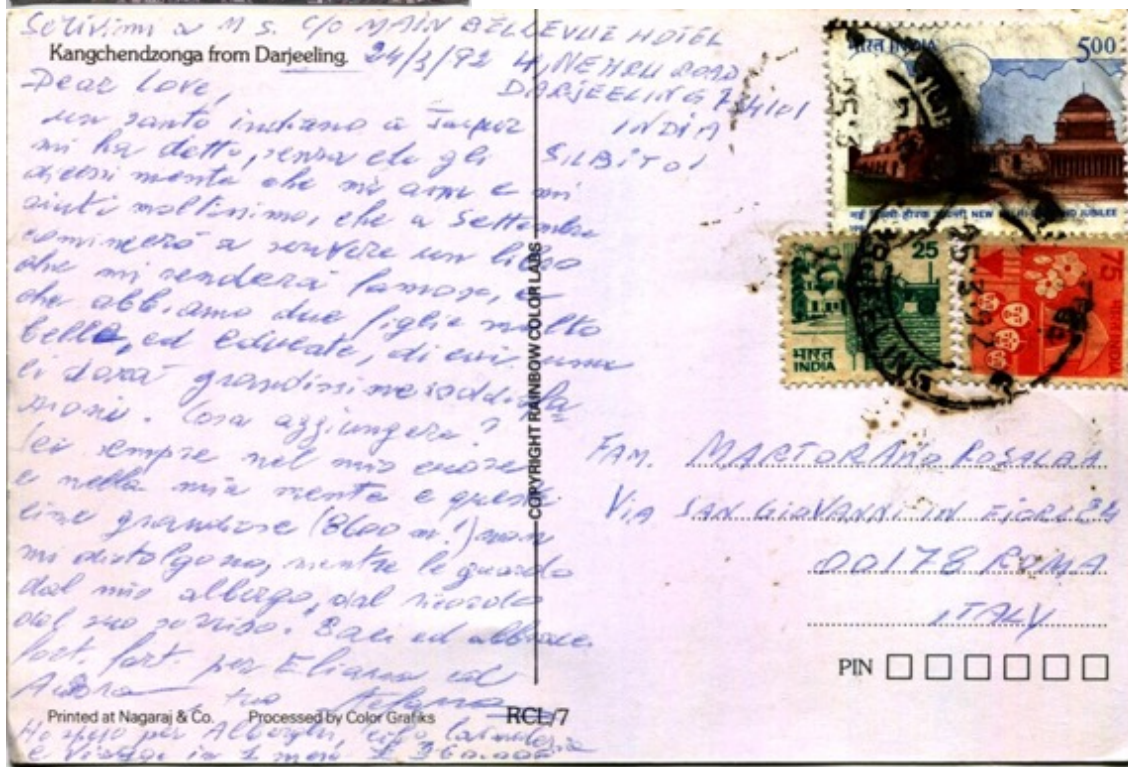 Scrivimi a M S. C/O MAIN BELLEVUE HOTEL
Kangchendzonga from Darjeeling.
24/3/92 4, NEHRU ROAD
DARJEELING 734101
INDIA
Dear Love,
un santo indiano a
mi ha detto, senza che gli
dicessi niente che mi ami e mi
aiuti moltissimo, che a Settembre
comincerò a scrivere un libro
che mi renderà famoso, e
che abbiamo due figlie molto
belle, ed educate, di cui una
ci darà grandissime soddisfa
zioni. Cosa aggiungere?
Sei sempre nel mio cuore
e nella mia mente e queste
cime grandiose (8600 m!) non
mi distolgono, mentre le guardo
dal mio albergo, dal ricordo
del tuo sorriso. Baci ed abbracci
fort. fort. per Eliana ed
tuo
Printed at Nagaraj & Co. Processed by Color Grafiks RCL/7
Ho speso per Alberghi, cibo,
e viaggi in 1 mese £ 360.000
COPYRIGHT RAINBOW COLOR LABS
भारत INDIA 500
NEW DELHI JUBILEE
25
भारत
INDIA
75
25.3.92
FAM. MARTORANO ROSALBA
VIA SAN GIOVANNI IN FIORE 24
00178 ROMA
ITALY
PIN